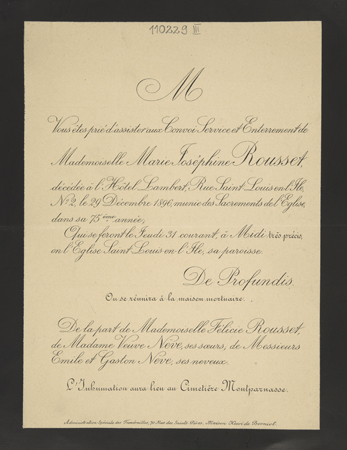 110229 III
M
Vous êtes prié d'assister aux Convoi, Service et Enterrement de
Mademoiselle Marie Joséphine Rousset,
décédée à l'Hôtel Lambert, Rue Saint Louis en l'Ile,
No 2, le 29 Décembre 1896, munie des Sacrements de l'Eglise,
dans sa 75ème année,
Qui se feront le Jeudi 31 courant, à Midi très précis,
en l'Eglise Saint Louis-en-l'Ile, sa paroisse.
De Profundis.
On se réunira à la maison mortuaire.
De la part de Mademoiselle Félicie Rousset,
de Madame Veuve Nève, ses sœurs, de Messieurs
Emile et Gaston Nève, ses neveux.
L'Inhumation aura lieu au Cimetière Montparnasse.
Administration Spéciale des Funérailles, Rue des Saints Pères, Maison Henri de Borniol.